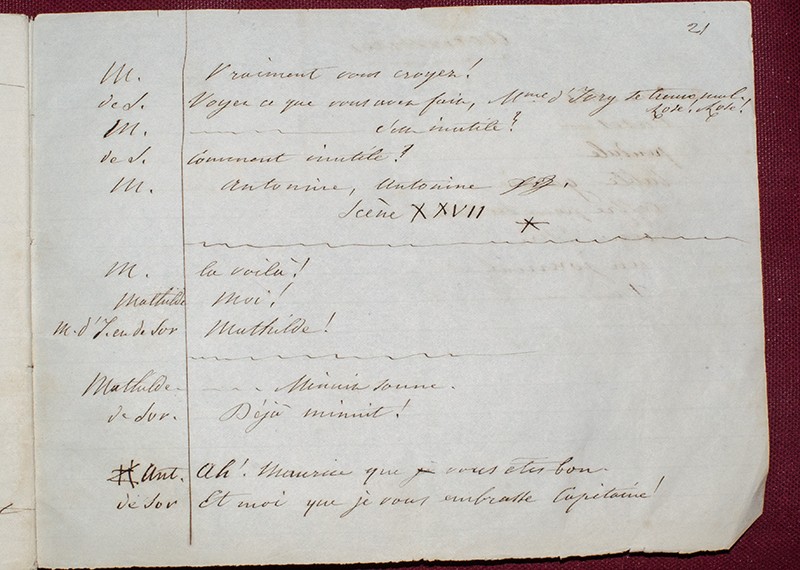 21
M. Vraiment vous croyez!
de S. Voyez ce que vous avez fait, Mme d'Ivry se trouve seul.
Rose, Rose!
M. c'est inutile?
de S. Comment inutile?
M. Antonine, Antonine
Scène XXVII
M. la voilà!
Mathilde Moi!
M. d'I. en de Sor Mathilde!
Mathilde. Minuit sonne.
de Sor. Déjà minuit!
Ant. Ah! Maurice que vous êtes bon.
de Sor Et moi que je vous embrasse Capitaine!